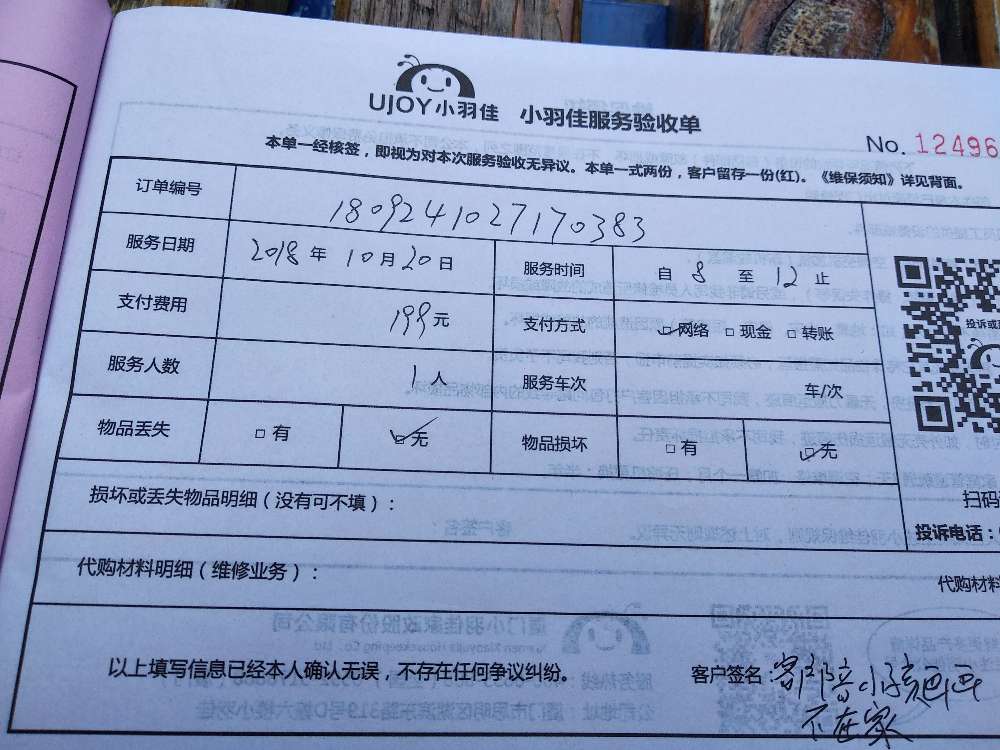 UJOY小羽佳 小羽佳服务验收单
No. 12496
本单一经核签，即视为对本次服务验收无异议。本单一式两份，客户留存一份(红)。《维保须知》详见背面。
订单编号 180924102717038​3
服务日期 2018年10月20日 服务时间 自8至12止
支付费用 199元 支付方式 ☑网络 □现金 □转账
投诉或
服务人数 1人 服务车次 车/次
物品丢失 □有 ☑无 物品损坏 □有 ☑无
损坏或丢失物品明细（没有可不填）：
扫码
投诉电话：
代购材料明细（维修业务）：
代购材料
以上填写信息已经本人确认无误，不存在任何争议纠纷。
客户签名：客户陪小孩画画
不在家